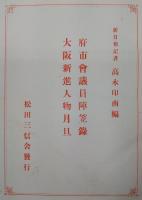 新日報記者 高木印南編
府市會議員陣笠錄
大阪新進人物月旦
松田三信会發行